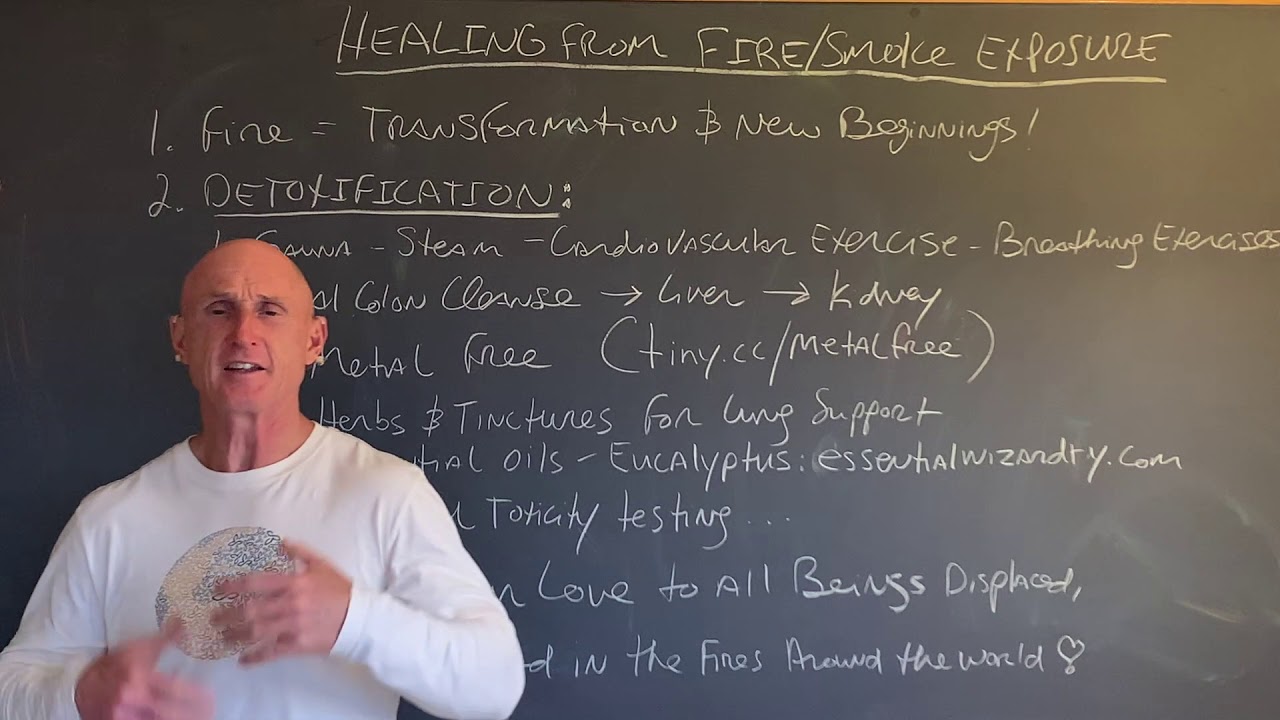 HEALING FROM FIRE/SMOKE EXPOSURE
1. Fire = TRANSFORMATION & New Beginnings!
2. DETOXIFICATION:
SAUNA - STEAM - CARDIOVASCULAR EXERCISE - Breathing EXERCISES
Colon Cleanse → Liver → Kidney
METAL Free (tiny.cc/METALfree)
Herbs & TINCTURES For Lung Support
Oils - EUCALYPTUS: essentialwizardry.com
Toxicity testing...
Love to All Beings Displaced,
in the Fires Around the world